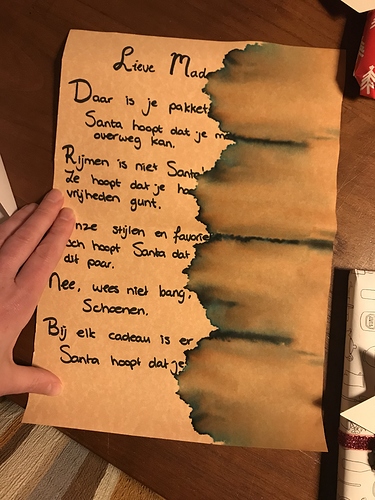 Lieve Mad
Daar is je pakket
Santa hoopt dat je m
overweg kan.
Rijmen is niet Santa'
Ze hoopt dat je ha
vrijheden gunt.
nze stijlen en favorie
och hoopt Santa dat
dit paar.
Nee, wees niet bang,
Schoenen.
Bij elk cadeau is er
Santa hoopt dat je